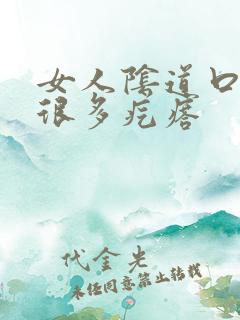 女人陰道口
很多疙瘩
代金光
未经同意禁止转载